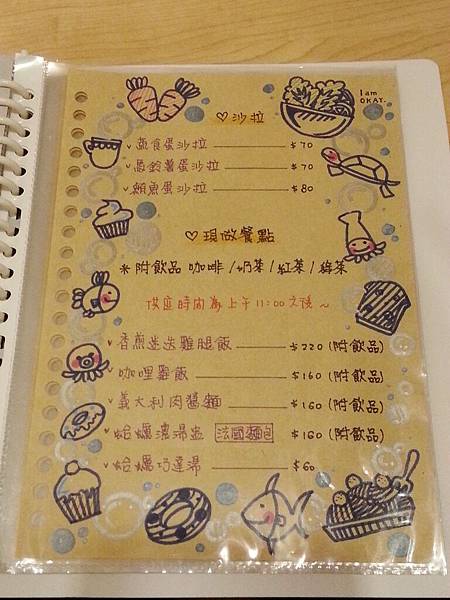 I am
OKAY.
♡沙拉
蔬食蛋沙拉 $70
馬鈴薯蛋沙拉 $70
鮪魚蛋沙拉 $80
♡現做餐點
*附飲品 咖啡/奶茶/紅茶/綠茶
供應時間為上午11:00之後~
香煎迷迭雞腿飯 $220 (附飲品)
咖哩雞飯 $160 (附飲品)
義大利肉醬麵 $160 (附飲品)
蛤蠣濃湯盅 法國麵包 $160 (附飲品)
蛤蠣巧達湯 $60